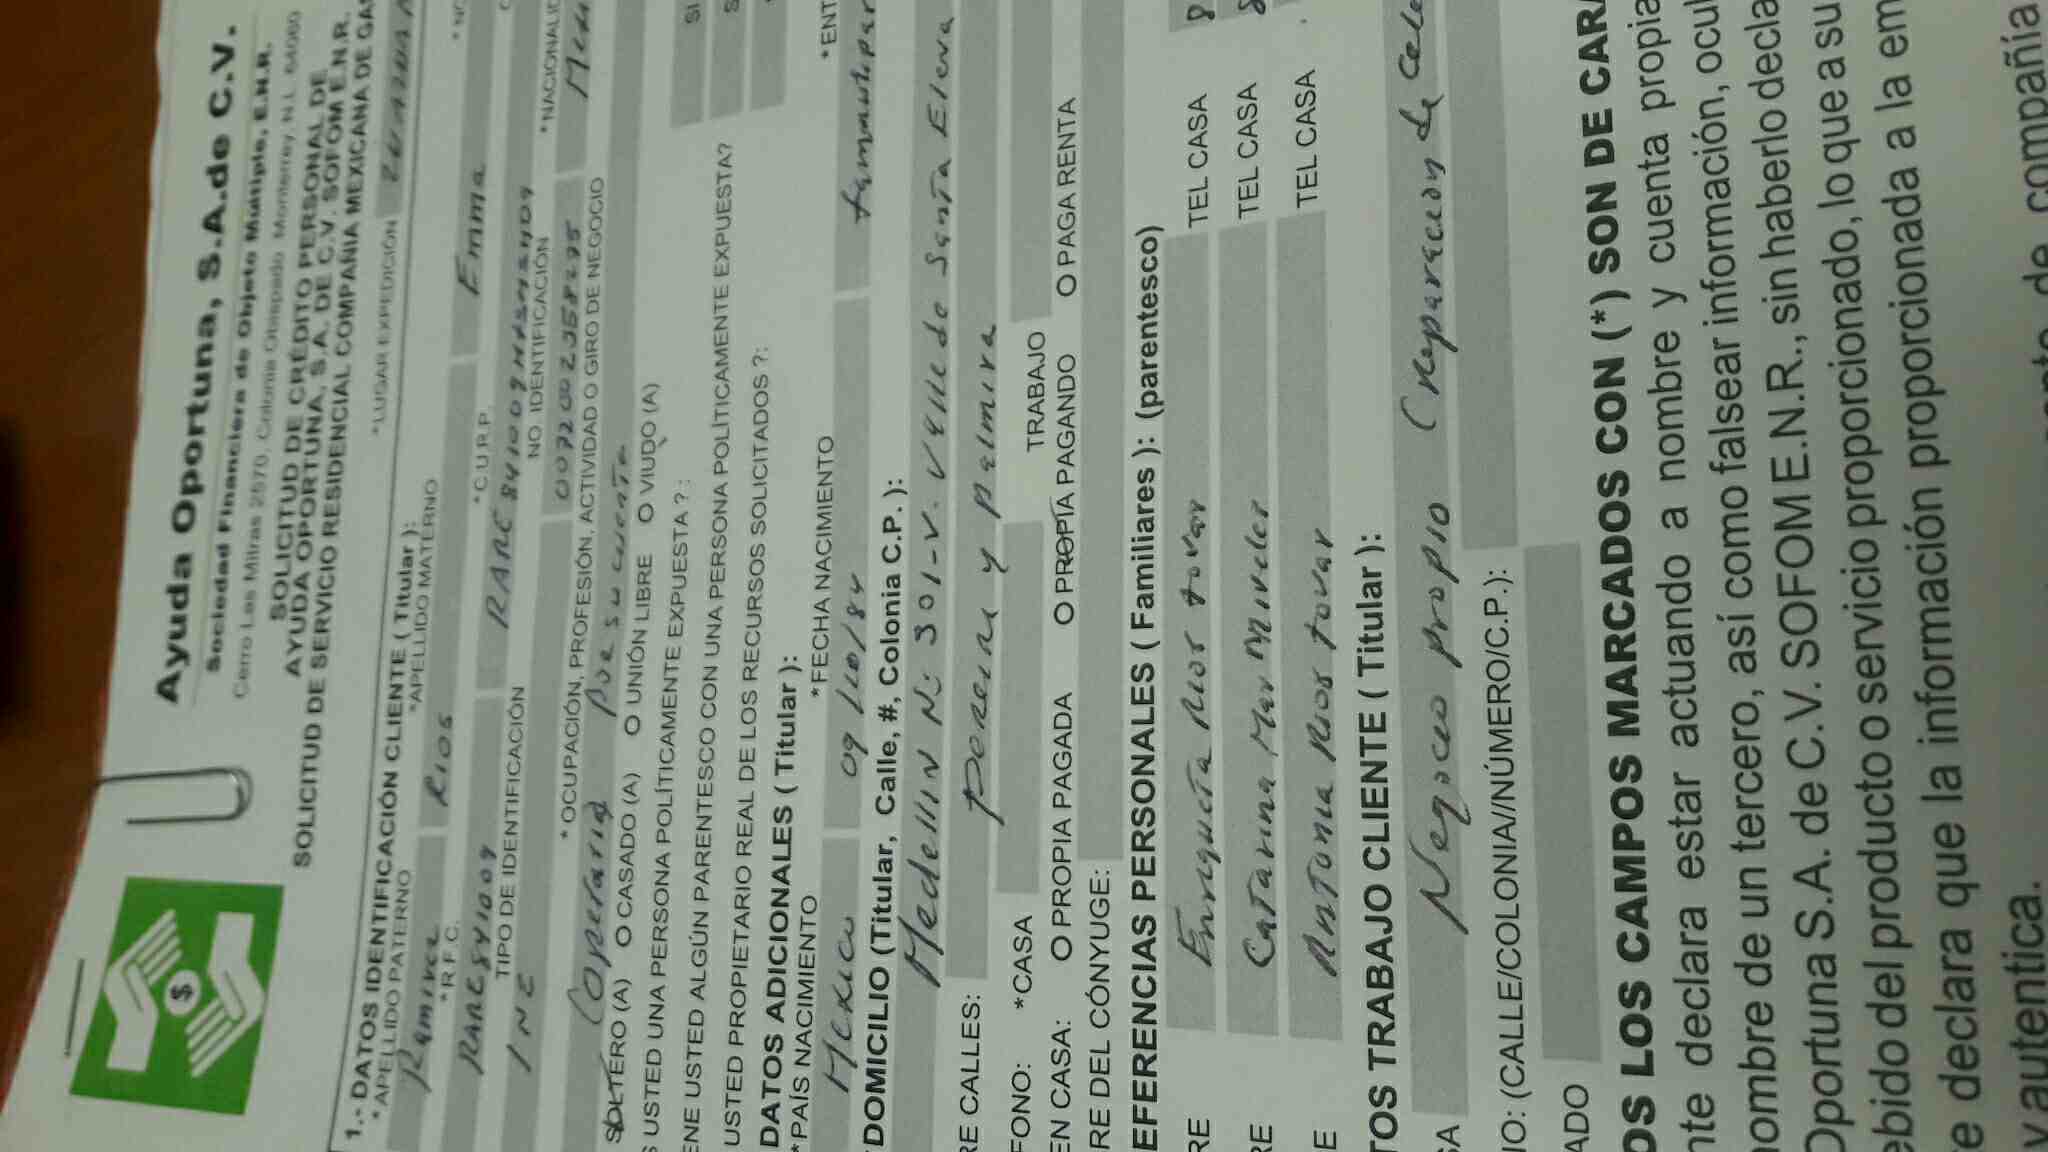 Ayuda Oportuna, S.A.de C.V.
Sociedad Financiera de Objeto Múltiple, E.N.R.
Cerro Las Mitras 2570, Colonia Obispado Monterrey, N.L. 64060
SOLICITUD DE CRÉDITO PERSONAL DE
AYUDA OPORTUNA, S.A. DE C.V. SOFOM E.N.R.
SOLICITUD DE SERVICIO RESIDENCIAL COMPAÑIA MEXICANA DE GAS
*LUGAR EXPEDICIÓN
1.- DATOS IDENTIFICACIÓN CLIENTE ( Titular ):
*APELLIDO PATERNO *APELLIDO MATERNO
Ramirez Rios Emma
*R.F.C. *C.U.R.P.
RARE841009
TIPO DE IDENTIFICACIÓN NO. IDENTIFICACIÓN *NACIONALID
INE 0072002358295
*OCUPACIÓN, PROFESIÓN, ACTIVIDAD O GIRO DE NEGOCIO
por su cuenta
SOLTERO (A) O CASADO (A) O UNIÓN LIBRE O VIUDO (A)
USTED UNA PERSONA POLÍTICAMENTE EXPUESTA ? : SI
ENE USTED ALGÚN PARENTESCO CON UNA PERSONA POLÍTICAMENTE EXPUESTA? S
USTED PROPIETARIO REAL DE LOS RECURSOS SOLICITADOS ?:
DATOS ADICIONALES ( Titular ):
*PAÍS NACIMIENTO *FECHA NACIMIENTO *ENT
Mexico 09/10/84
DOMICILIO (Titular, Calle, #, Colonia C.P. ):
Medellin No 301-V. Valle de Santa Elena
RE CALLES: Pereira y palmira
FONO: *CASA TRABAJO
EN CASA: O PROPIA PAGADA O PROPÍA PAGANDO O PAGA RENTA
RE DEL CÓNYUGE:
EFERENCIAS PERSONALES ( Familiares ): (parentesco)
RE Enriqueta Rios tovar TEL CASA 8
RE Catarina Mar Mireles TEL CASA
E Antonia Rios tovar TEL CASA
TOS TRABAJO CLIENTE ( Titular ):
SA Negocio propio (reparacion de Cele
IO: (CALLE/COLONIA//NÚMERO/C.P.):
ADO
OS LOS CAMPOS MARCADOS CON (*) SON DE CARA
nte declara estar actuando a nombre y cuenta propia
nombre de un tercero, así como falsear información, ocul
Oportuna S.A. de C.V. SOFOM E.N.R., sin haberlo decla
ebido del producto o servicio proporcionado, lo que a su
e declara que la información proporcionada a la em
y autentica.
de compañía